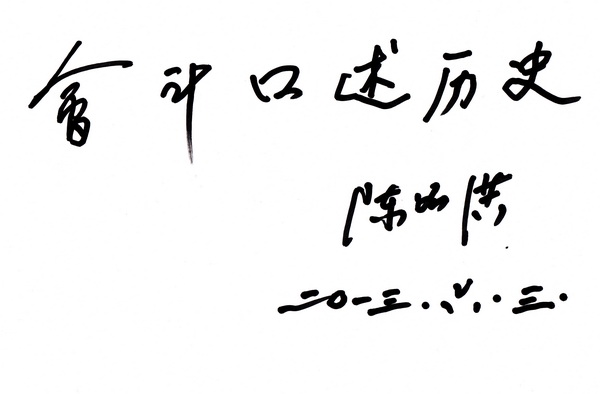 會计口述历史
陈 洪
二〇一三.六.三.